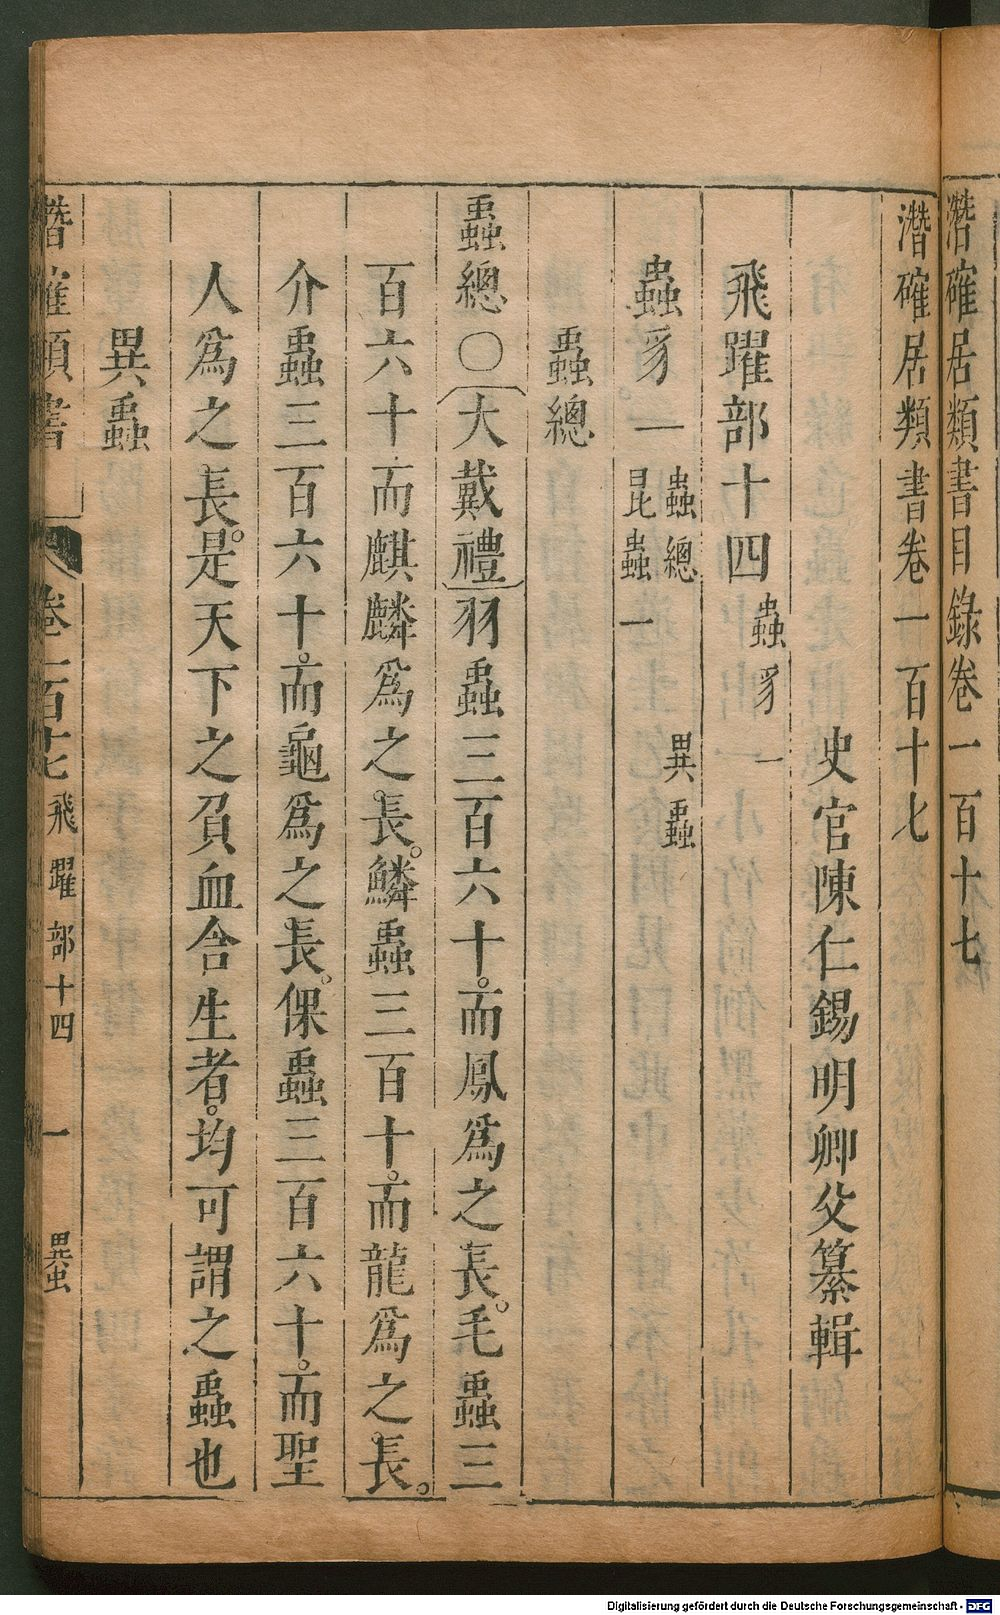 潛確居類書目錄卷一百十七
潛確居類書卷一百十七
史官陳仁錫明卿父纂輯
飛躍部十四 蟲豸一
蟲豸一 蟲總 異蟲
昆蟲一
蟲總
蟲總〇大戴禮羽蟲三百六十。而鳳爲之長。毛蟲三
百六十而麒麟爲之長。鱗蟲三百十。而龍爲之長。
介蟲三百六十。而龜爲之長。倮蟲三百六十。而聖
人爲之長。是天下之負血含生者。均可謂之蟲也
異蟲
潛確類書 卷一百十七 飛躍部十四 一 異蟲
Digitalisierung gefördert durch die Deutsche Forschungsgemeinschaft - DFG